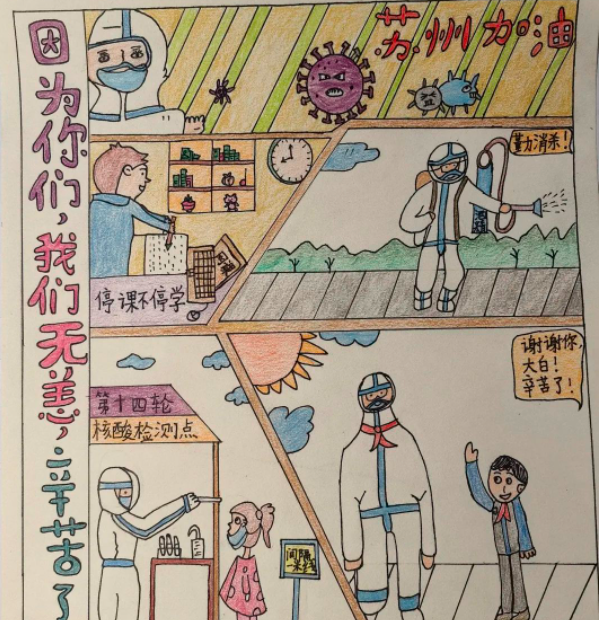 因为你们，我们无恙，辛苦了
苏州加油
勤消杀！
停课不停学
第十四轮
核酸检测点
间隔
一米线
谢谢你，
大白！
辛苦了！